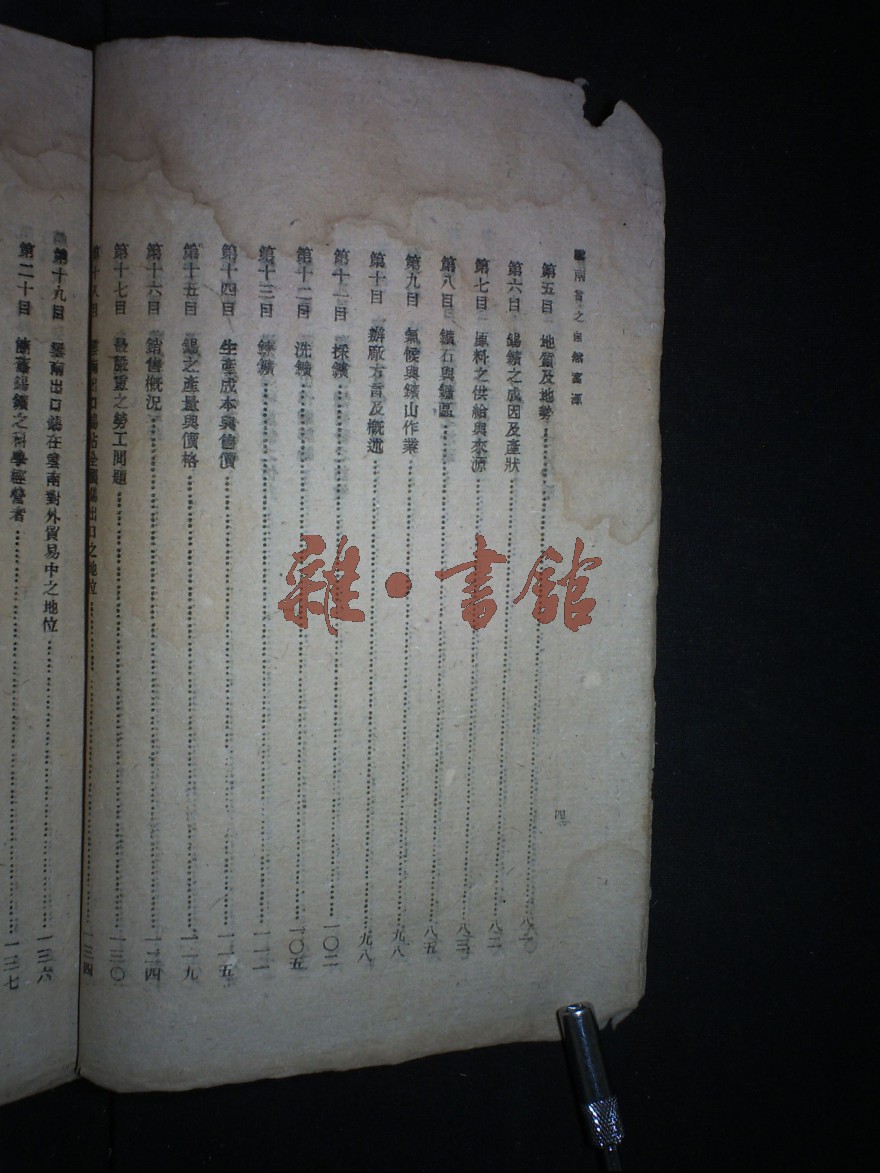 雲南省之自然富源
四
第五目 地質及地勢……八〇
第六目 錫鑛之成因及產狀……八二
第七目 原料之供給與來源……八三
第八目 鑛石與鑛區……八五
第九目 氣候與鑛山作業……九八
第十目 辦廠方言及概述……九八
第十一目 採鑛……一〇二
第十二目 洗鑛……一〇五
第十三目 鍊鑛
第十四目 生產成本與售價……一一五
第十五目 錫之產量與價格
第十六目 銷售概況……一二四
第十七目 最嚴重之勞工問題……一三〇
第十八目 雲南出口錫佔全國錫出口之地位……一三四
第十九目 雲南出口錫在雲南對外貿易中之地位……一三六
第二十目 錫鑛之科學經營者
雜·書館